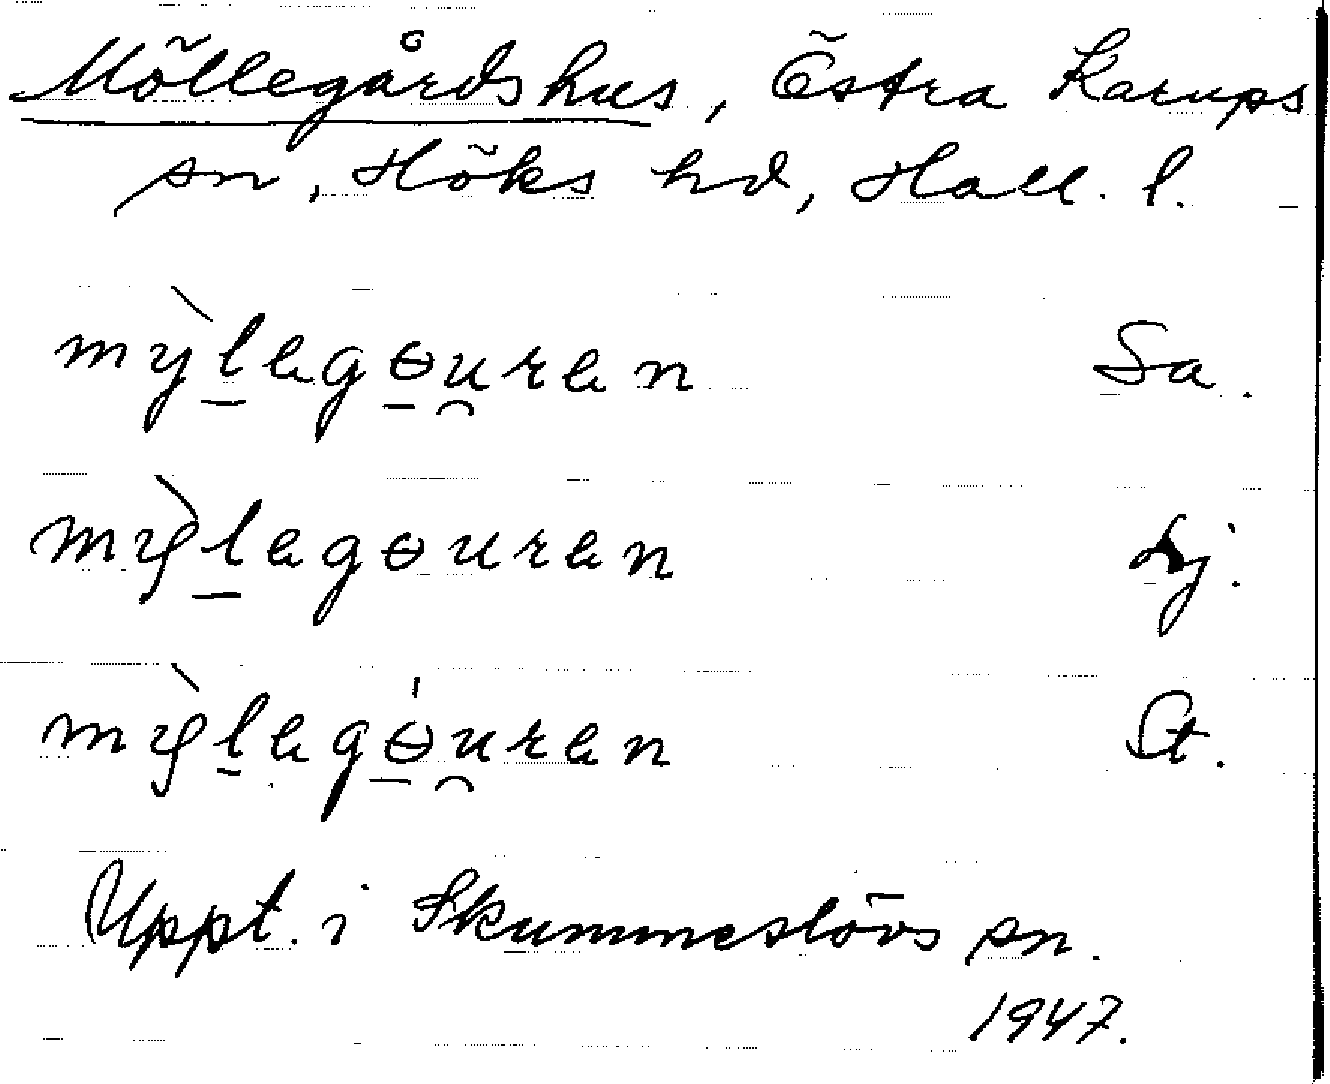 Möllegårdshus, Östra Karups
sn, Höks hd, Hall. l.
mỳlegɵuren Sa.
mỳlegɵuren Lj.
mỳlegɵ́uren St.
Uppt. i Skummeslövs sn.
1947.